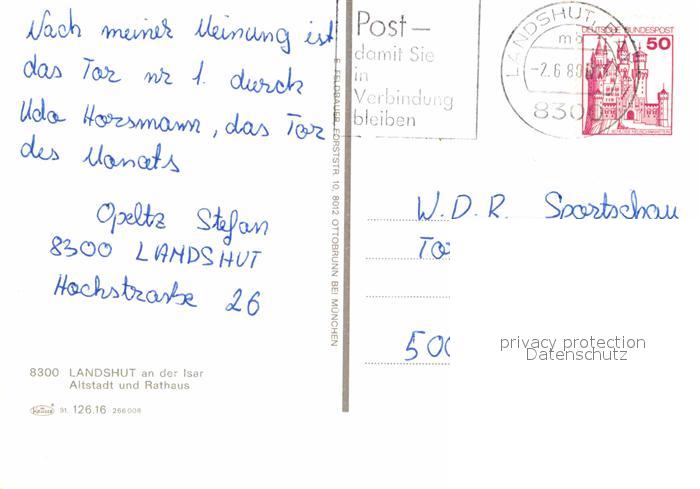 Nach meiner Meinung ist
das Tor nr 1. durch
Udo Horsmann, das Tor
des Monats
Opeltz Stefan
8300 LANDSHUT
Hochstraße 26
8300 LANDSHUT an der Isar
Altstadt und Rathaus
Krüger 91. 126.16 266008
E. FELDBAUER, FORSTSTR. 10, 8012 OTTOBRUNN BEI MÜNCHEN
Post –
damit Sie
in
Verbindung
bleiben
LANDSHUT
mb
-2.6.80
8300
DEUTSCHE BUNDESPOST
50
SCHLOSS NEUSCHWANSTEIN
W.D.R. Sportschau
To
500
privacy protection
Datenschutz